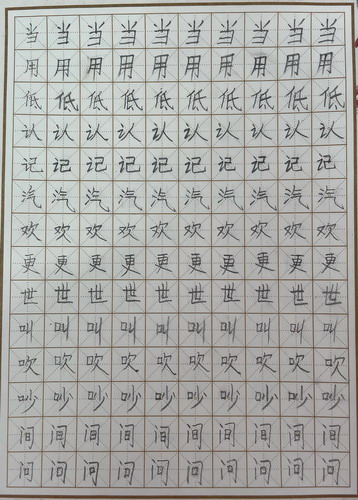 当当当当当当当当当当
用用用用用用用用用用
低低低低低低低低低低
认认认认认认认认认认
记记记记记记记记记记
汽汽汽汽汽汽汽汽汽汽
欢欢欢欢欢欢欢欢欢欢
更更更更更更更更更更
世世世世世世世世世世
叫叫叫叫叫叫叫叫叫叫
吹吹吹吹吹吹吹吹吹吹
吵吵吵吵吵吵吵吵吵吵
间间间间间间间间间间
问问问问问问问问问问